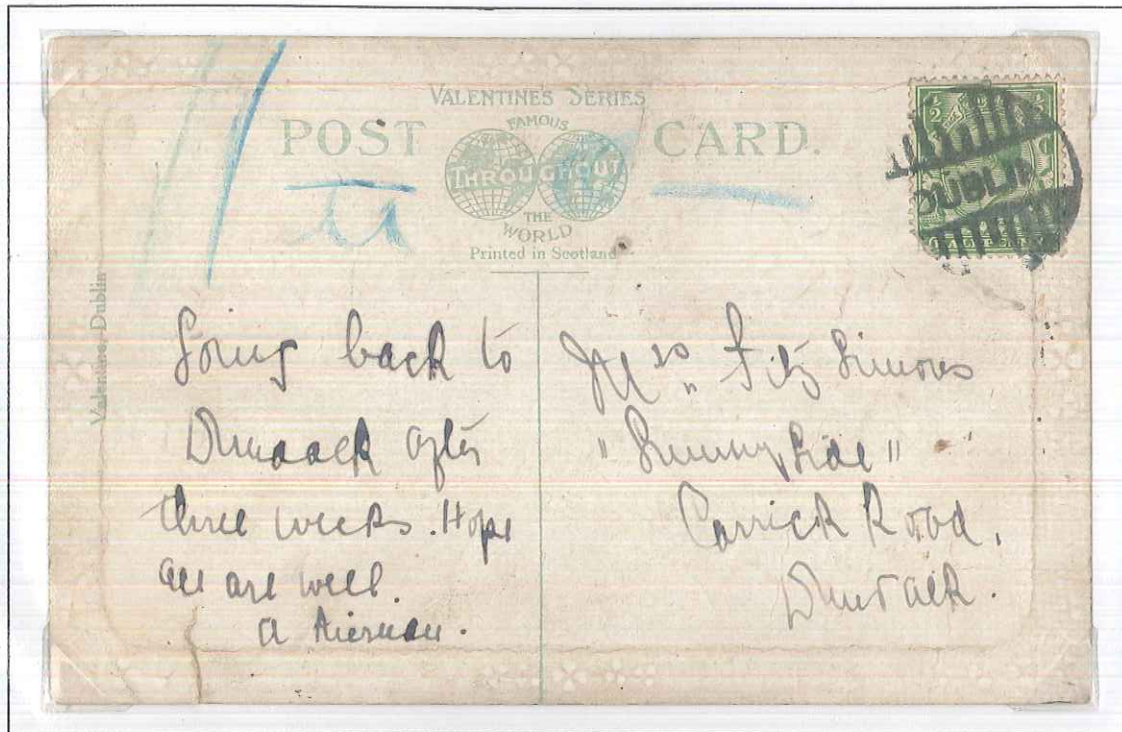 VALENTINE'S SERIES
POST CARD.
FAMOUS
THROUGHOUT
THE
WORLD
Printed in Scotland
Valentine, Dublin
½ D
DUBLIN
Going back to
Dundalk after
three weeks. Hope
all are well.
A Kiernan.
Mrs Fitz Simons
"Sunny Side"
Carrick Road.
Dundalk.